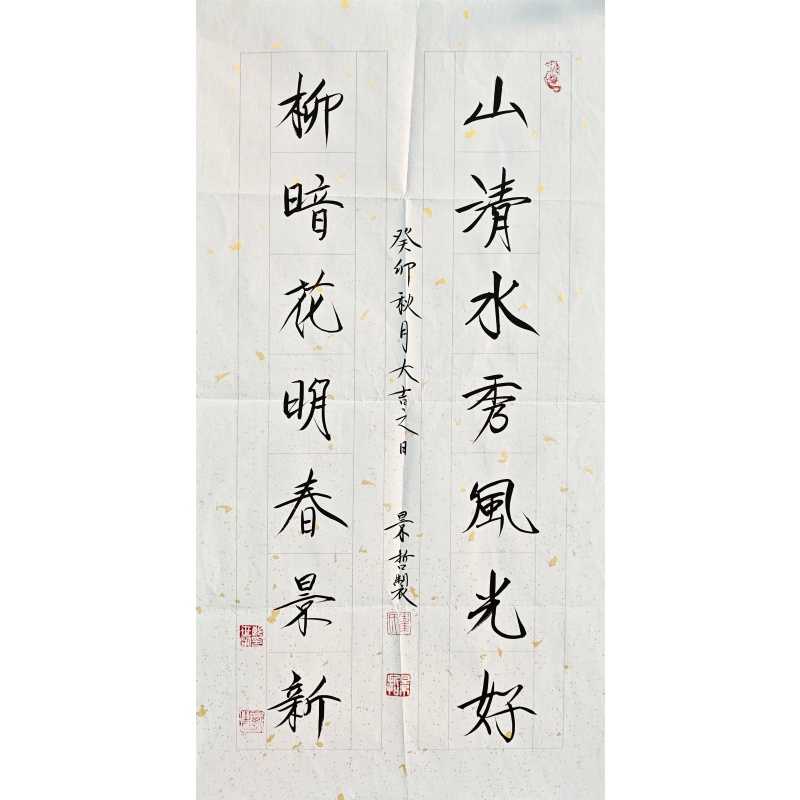 山清水秀風光好
柳暗花明春景新
癸卯秋月大吉之日
景哲製